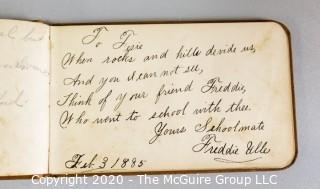 To
When rocks and hills divide us,
And you I can not see,
Think of your friend Freddie,
Who went to school with thee.
Yours Schoolmate
Freddie
Feb. 3 1885
Copyright © 2020 - The McGuire Group, LLC